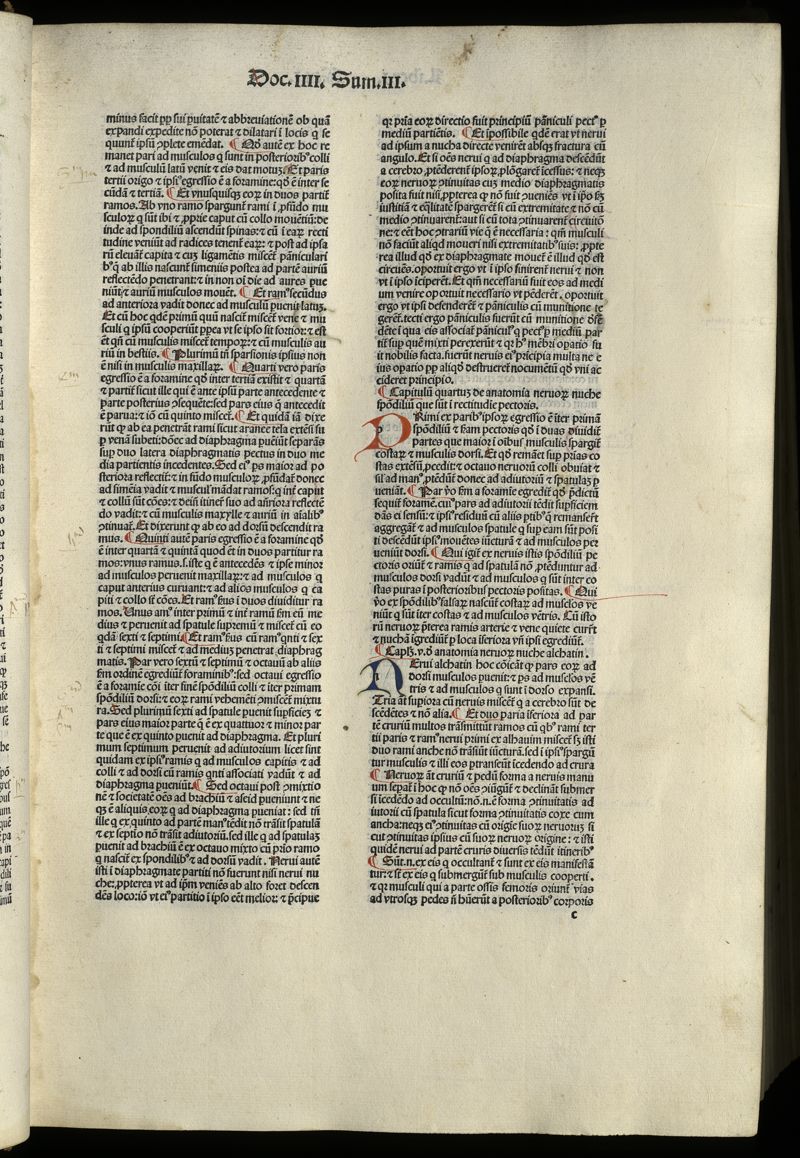 Doc. IIII. Sum. III.
minus facit ꝓp̱ sui ꝑuitatē ⁊ abbreviationē ob quā
expandi expedite nō poterat ⁊ dilatari ī locis q̄ se
quunt̄ ip̄sū ꝯplete emēdat. ¶ Qđ autē ex hoc re
manet pari ad musculos q̄ sunt in posteriorib⁹ colli
⁊ ad musculū latū venit ⁊ eis dat motuꝫ. ¶ Et paris
tertii origo ⁊ ip̄si⁹ egressio ē a foramine: qđ ē inter se
cūdā ⁊ tertiā. ¶ Et vnusquisqꝫ eoꝝ in duos partit̄
ramos. Ab vno ramo spargunt̄ rami ī ꝓfūdo mu
sculoꝝ q̄ sūt ibi ⁊ ꝓprie caput cū collo mouētiū: de
inde ad spondiliū ascendūt spinas: ⁊ cū ī eaꝝ recti
tudine veniūt ad radices tenent̄ eaꝝ: ⁊ post ad ipsa
rū eleuāt̄ capita ⁊ cuꝫ ligamētis miscet̄ pāniculari
b⁹ q̄ ab illis nascunt̄ simeniis postea ad partē auriū
reflectēdo penetrant: ⁊ in non oī die ad aures ꝑue
niūt ⁊ auriū musculos mouēt. ¶ Et ram⁹ secūdus
ad anteriora vadit donec ad musculū ꝑuenit latuꝫ.
Et cū hoc qdē primū quū nascit̄ miscet̄ vene ⁊ mu
sculi q̄ ip̄sū cooperiūt ꝓpea vt se ipso sit fortior: ⁊ est
ēt qn̄ cū musculis miscet̄ tempoꝝ: ⁊ cū musculis au
riū in bestiis. ¶ Plurimū tn̄ sparsionis ipsius non
ē nisi in musculis maxillaꝝ. ¶ Quarti vero paris
egressio ē a foramine qđ inter tertiā existit ⁊ quartā
⁊ partit̄ sicut ille qui ē ante ipsū parte antecedente ⁊
parte posterius ꝯsequēte: sed pars eius q̄ antecedit
ē parua: ⁊ iō cū quinto miscet̄. ¶ Et quidā iā dixe
rūt ꝙ ab ea penetrāt rami sicut aranee tela extēsi sū
ꝑ venā subeti: dōec ad diaphragma ꝑueīūt separās
suꝑ duo latera diaphragmatis pectus in duo me
dia partientis incedentes. Sed ei⁹ ꝑs maior ad po
steriora reflectit̄: ⁊ in fūdo musculoꝝ ꝓfūdat̄ donec
ad simēia vadit ⁊ muscul̄ mādat ramos: q̄ int̄ caput
⁊ collū sūt cōes: ⁊ dein itinet̄ suo ad an̄riora reflectē
do vadit: ⁊ cū musculis maxylle ⁊ auriū in aīalib⁹
ꝯtinuat̄. Et dixerunt ꝙ ab eo ad dorsū descendit ra
mus. ¶ Quinti autē paris egressio ē a foramine qđ
ē inter quartā ⁊ quintā quod ēt in duos partitur ra
mos: vnus ramus .s. iste q̄ ē antecedēs ⁊ ipse minor
ad musculos peruenit maxillaꝝ: ⁊ ad musculos q̄
caput anterius curuant: ⁊ ad alios musculos q̄ ca
piti ⁊ collo st̄ cōes. Et ram⁹ scd̄us ī duos diuiditur ra
mos. Vnus am⁹ inter primū ⁊ int̄ ramū scd̄m eū me
dius ⁊ peruenit ad spatule supremū ⁊ miscet̄ cū eo
qđā sexti ⁊ septimi. ¶ Et ram⁹ scd̄us cū ram⁹ qnti ⁊ sex
ti ⁊ septimi miscet̄ ⁊ ad medium penetrat diaphrag
matis. ¶ Par vero sextū ⁊ septimū ⁊ octauū ab aliis
scd̄m ordinē egrediūt̄ foraminib⁹: sed octaui egressio
ē a foramīe cōi iter finē spōdiliū colli ⁊ iter primam
spōdiliū dorsi: ⁊ eoꝝ rami vehemēti ꝯmiscēt̄ mixtu
ra. Sed plurimū sexti ad spatule puenit suꝑficieꝫ ⁊
pars eius maior parte q̄ ē ex quattuor ⁊ minor par
te que ē ex quinto puenit ad diaphragma. Et pluri
mum septimum peruenit ad adiutorium licet sint
quidam ex ipsi⁹ ramis q̄ ad musculos capitis ⁊ ad
colli ⁊ ad dorsi cū ramis qnti associati vadūt ⁊ ad
diaphragma pueniūt. ¶ Sed octaui post ꝯmixtio
nē ⁊ societatē oēs ad brachiū ⁊ aseid ꝑueniunt ⁊ ne
qꝫ ē aliquis eoꝝ q̄ ad diaphragma pueniat: sed tn̄
ille q̄ ex quinto ad partē man⁹ tēdit nō trāsit spatulā
⁊ ex septio nō trāsit adiutoriū. sed ille q̄ ad spatulaꝫ
ꝑuenit ad brachiū ē ex octauo mixto cū prio ramo
q̄ nascit̄ ex spondilib⁹ ⁊ ad dorsū vadit. Nerui autē
isti ī diaphragmate partiti nō fuerunt nisi nerui nu
che: ꝓpterea vt ad ip̄m veniēs ab alto foret descen
dēs loco: iō vt ei⁹ partitio ī ipso eēt melior: ⁊ p̄cipue
qꝛ pria eoꝝ directio fuit principiū pāniculi pect⁹ ꝑ
mediū partiētis. ¶ Et īpossibile qdē erat vt nerui
ad ipsum a nucha directe venirēt absqꝫ fractura cū
angulo. Et si oēs nerui q̄ ad diaphragma descēdūt
a cerebro ꝓtēderent̄ ipsoꝝ ꝓlōgaret̄ icessus: ⁊ neqꝫ
eoꝝ neruoꝝ ꝯtinuitas cuꝫ medio diaphragmatis
posita fuit nisi ꝓpterea ꝙ nō fuit ꝯueniēs vt ī ip̄o scd̄ꝫ
iustitiā ⁊ eq̄litatē spargerēt̄ si cū extremitate ⁊ nō cū
medio ꝯtinuarent̄: aut si cū tota ꝯtinuarent̄ circuitō
ne: ⁊ eēt hoc ꝯtrariū vie q̄ ē necessaria: qm̄ musculi
nō faciūt aliqd moueri nisi extremitatib⁹ suis: ꝓpte
rea illud qđ ex diaphragmate mouet̄ ē illud qđ est
circuiēs. oportuit ergo vt ī ipso finirent̄ nerui ⁊ non
vt ī ipso īciperēt. Et qm̄ necessariū fuit eos ad medi
um venire oportuit necessario vt pēderēt. oportuit
ergo vt ip̄si defenderēt̄ ⁊ pāniculis cū munitione te
gerēt̄. tecti ergo pāniculis fuerūt cū munitione ds̄ē
dēte ī qua eis associat̄ pānicul⁹ q̄ pect⁹ ꝑ mediū par
tit̄ suꝑ quē mixti perexerūt ⁊ qꝛ h⁹ mēbri oꝑatio fu
it nobilis facta. fuerūt neruis ei⁹ pricipia multa ne e
ius oꝑatio ꝓp̱ aliqđ destrueret̄ nocumētū qđ vni ac
cideret principio.
¶ Capitulū quartuꝫ de anatomia neruoꝝ nuche
spōdiliū que sūt ī rectitudie pectoris.
PRimi ex parib⁹ ipsoꝝ egressio ē iter primā
spōdiliū ⁊ scd̄am pectoris qđ ī duas diuidit̄
partes que maior ī oibus musculis spargit̄
costaꝝ ⁊ musculis dorsi. Et qđ remāet suꝑ prias co
stas extēsū ꝓcedit: ⁊ octauo neruorū colli obuiat ⁊
sil̄ ad man⁹ ꝓtēdūt̄ donec ad adiutoriū ⁊ spatulaꝫ ꝑ
ueniāt. ¶ Par ṽo scd̄m a foramīe egredit̄ qđ p̄dictū
sequit̄ foramē. cui⁹ pars ad adiutorii tēdit suꝑficiem
dās ei sensū: ⁊ ip̄si⁹ residuū cū aliis ꝑtib⁹ q̄ remanserūt
aggregat̄ ⁊ ad musculos spatule q̄ suꝑ eam sūt posi
ti descēdūt ip̄si⁹ mouētes iūcturā ⁊ ad musculos per
ueniūt dorsi. ¶ Qui igit̄ ex neruis istis spōdiliū pe
ctoris oriūt̄ ⁊ ramis q̄ ad spatulā nō ꝓtēduntur ad
musculos dorsi vadūt ⁊ ad musculos q̄ sūt inter co
stas puras ī posterioribus pectoris positas. ¶ Qui
ṽo ex spōdilib⁹ falsaꝝ nascūt̄ costaꝝ ad musclos ve
niūt q̄ sūt iter costas ⁊ ad musculos vētris. Cū isto
rū neruoꝝ ꝑterea ramis arterie ⁊ vene quiete curr̄t
⁊ nuchā īgrediūt̄ ꝑ loca iferiora vn̄ ipsi egrediūt̄.
¶ Caplꝫ .v. đ anatomia neruoꝝ nuche alchatin.
NErui alchatin hoc cōicāt ꝙ pars eoꝝ ad
dorsi musculos puenit: ⁊ ꝑs ad musclos vē
tris ⁊ ad musculos q̄ sunt ī dorso expansi.
Tria āt supiora cū neruis miscēt̄ q̄ a cerebro sūt de
scēdētes ⁊ nō alia. ¶ Et duo paria īferiora ad par
tē cruriū multos trāsmittūt ramos cū qb⁹ rami ter
tii paris ⁊ ram⁹ nerui primi ex alhauim miscet̄ scꝫ isti
duo rami anche nō trāsiūt iūcturā. sed ī ip̄si⁹ spargūt̄
tur musculis ⁊ illi eos ptrāseunt īcedendo ad crura
¶ Neruoꝝ āt cruriū ⁊ pedū forma a neruis manu
um sepat̄ ī hoc ꝙ nō oēs ꝯiūgūt̄ ⁊ declināt submer
si īcedēdo ad occultū: nō .n. ē forma ꝯtinuitatis ad
iutorii cū spatula sicut forma ꝯtinuitatis coxe cum
ancha: neqꝫ ei⁹ ꝯtinuitas cū origie suoꝝ neruoꝝ si
cut ꝯtinuitas ipsius cū suoꝝ neruoꝝ origine: ⁊ isti
quidē nerui ad partē cruris diuersis tēdūt itinerib⁹
¶ Sūt .n. ex eis q̄ occultant̄ ⁊ sunt ex eis manifestā
tur: ⁊ st̄ ex eis q̄ submergūt̄ sub musculis cooperti.
⁊ qꝛ musculi qui a parte ossis femoris oriunt̄ vias
ad vtrosqꝫ pedes n̄ hūerūt a posteriorib⁹ corporis
c